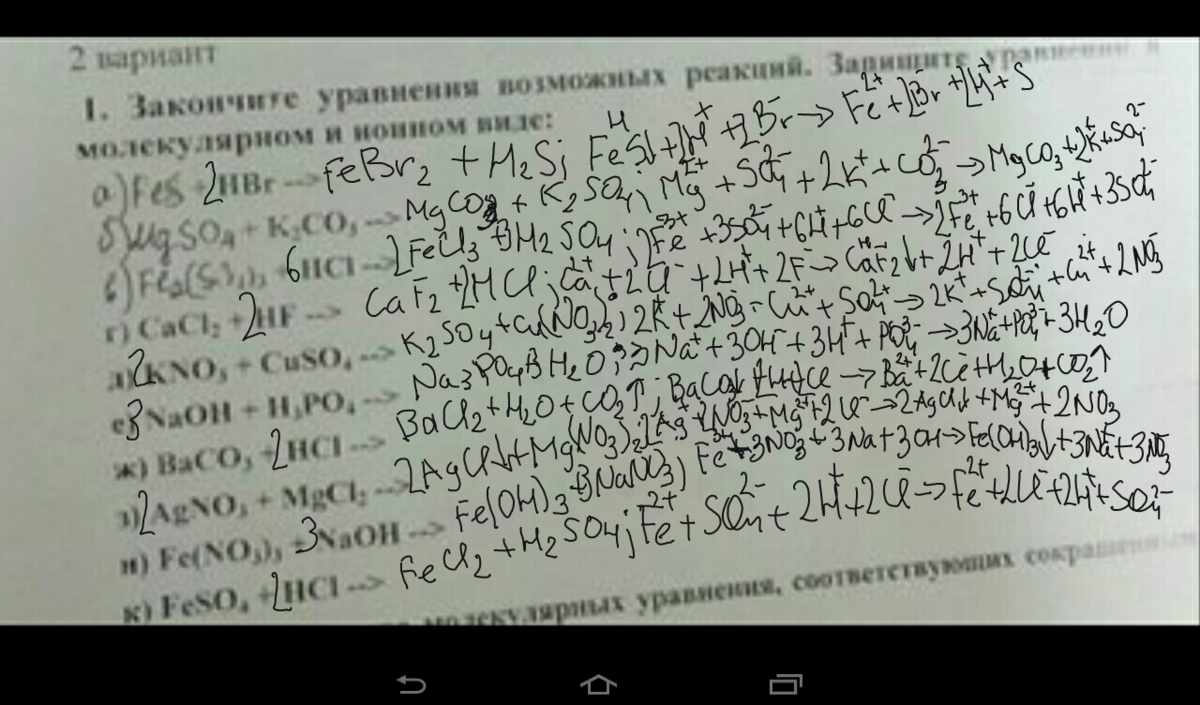 2 вариант
1. Закончите уравнения возможных реакций. Запишите уравнения в
молекулярном и ионном виде:
а) FeS + 2HBr --> FeBr₂ + H₂S; FeS↓ + 2H⁺ + 2Br⁻ → Fe²⁺ + 2Br⁻ + 2H⁺ + S
б) MgSO₄ + K₂CO₃ --> MgCO₃ + K₂SO₄; Mg²⁺ + SO₄²⁻ + 2K⁺ + CO₃²⁻ → MgCO₃ + 2K⁺ + SO₄²⁻
в) Fe₂(SO₄)₃ + 6HCl --> 2FeCl₃ + 3H₂SO₄; 2Fe³⁺ + 3SO₄²⁻ + 6H⁺ + 6Cl⁻ → 2Fe³⁺ + 6Cl⁻ + 6H⁺ + 3SO₄²⁻
г) CaCl₂ + 2HF --> CaF₂ + 2HCl; Ca²⁺ + 2Cl⁻ + 2H⁺ + 2F⁻ → CaF₂↓ + 2H⁺ + 2Cl⁻
д) 2KNO₃ + CuSO₄ --> K₂SO₄ + Cu(NO₃)₂; 2K⁺ + 2NO₃⁻ - Cu²⁺ + SO₄²⁺ → 2K⁺ + SO₄²⁻ + Cu²⁺ + 2NO₃⁻
е) 3NaOH + H₃PO₄ --> Na₃PO₄ + 3H₂O; 3Na⁺ + 3OH⁻ + 3H⁺ + PO₄³⁻ → 3Na⁺ + PO₄³⁻ + 3H₂O
ж) BaCO₃ + 2HCl --> BaCl₂ + H₂O + CO₂↑; BaCO₃↓ + 2H⁺ + 2Cl → Ba²⁺ + 2Cl⁻ + H₂O + CO₂↑
з) 2AgNO₃ + MgCl₂ --> 2AgCl↓ + Mg(NO₃)₂; 2Ag⁺ + 2NO₃⁻ + Mg²⁺ + 2Cl⁻ → 2AgCl↓ + Mg²⁺ + 2NO₃
и) Fe(NO₃)₃ + 3NaOH --> Fe(OH)₃ + 3NaNO₃; Fe³⁺ + 3NO₃⁻ + 3Na + 3OH → Fe(OH)₃↓ + 3Na⁺ + 3NO₃⁻
к) FeSO₄ + 2HCl --> FeCl₂ + H₂SO₄; Fe²⁺ + SO₄²⁻ + 2H⁺ + 2Cl⁻ → Fe²⁺ + 2Cl⁻ + 2H⁺ + SO₄²⁻
молекулярных уравнения, соответствующих сокращенным